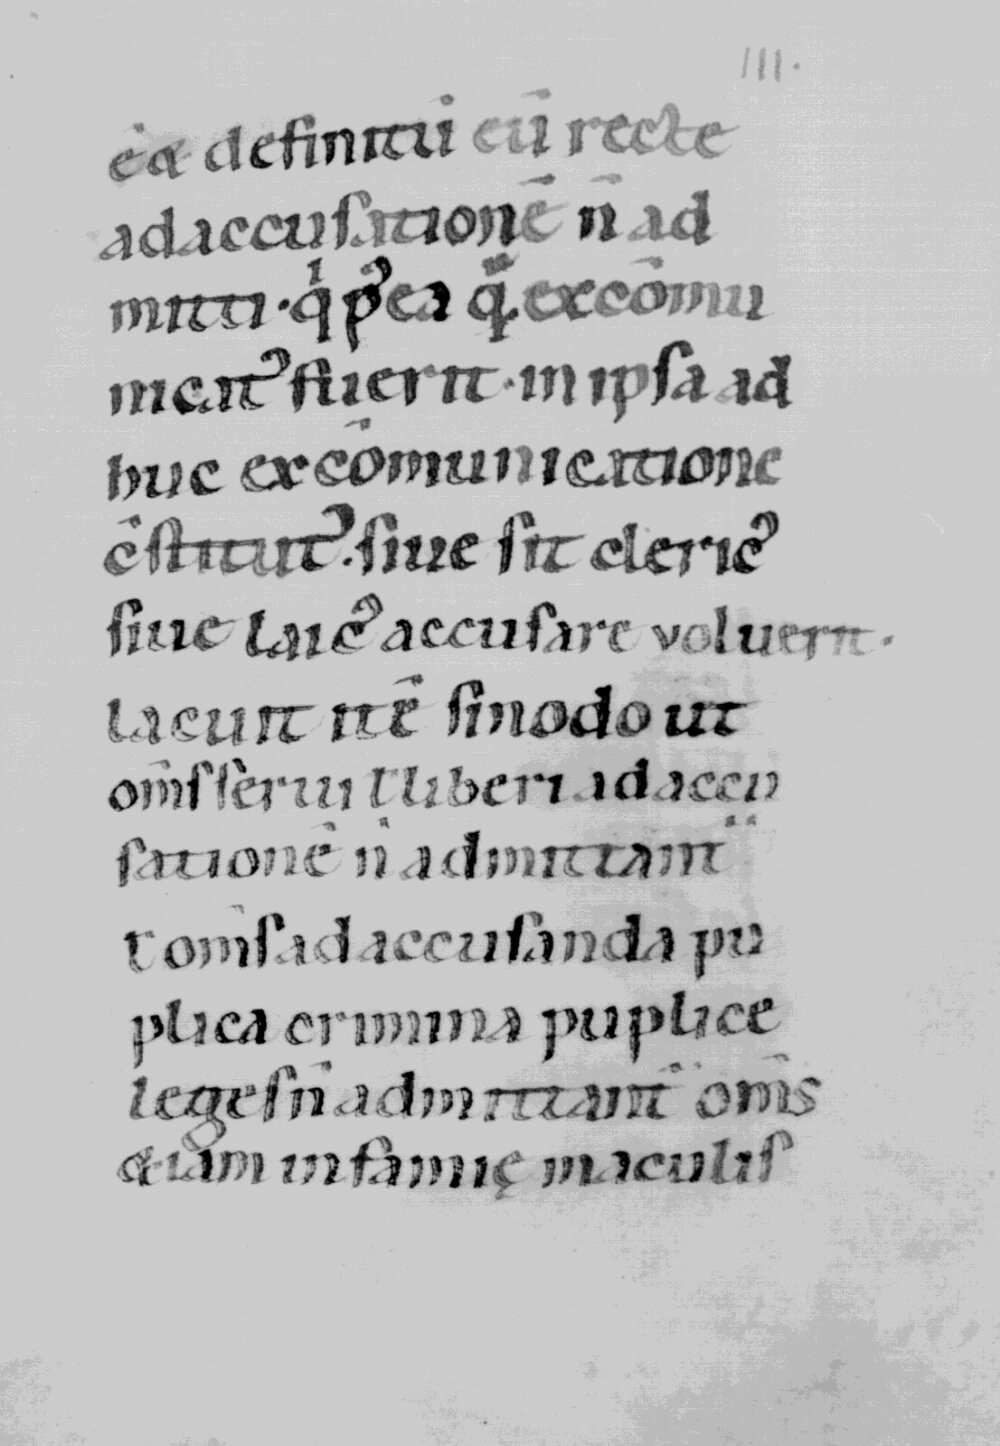 III·
ea definitū eū recte
ad accusationē n̄ ad
mitti· qͥ p᾽ea q̄ excōmu
nicat᾽ fuerit· in ipsa ad
huc excōmunicatione
c̄stitut᾽· siue sit cleric᾽
siue laic᾽ accusare voluerit·
lacuit itē sinodo ut
om̄s serui ł liberi ad accu
sationē n̄ admittant̄
t om̄s ad accusanda pu
plica crimina puplice
leges n̄ admittant̄ om̄s
&iam infamię maculis